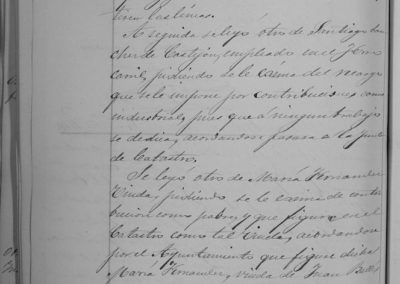 A seguida se leyó otro de Santiago
cher de Castejon, empleado en el ferro
carril, pidiendo se le exima del
que se le impone por contribuciones como
industrial, pues que á ningun trabajo
se dedica, acordandose pasara a la Junta
de Catastro.
Se leyó otro de María Fernandez
Viuda, pidiendo se le exima de contri
bucion como pobre, y que figure en el
Catastro como tal Viuda, acordandose
por el Ayuntamiento que figure dicha
María Fernandez, viuda de Juan